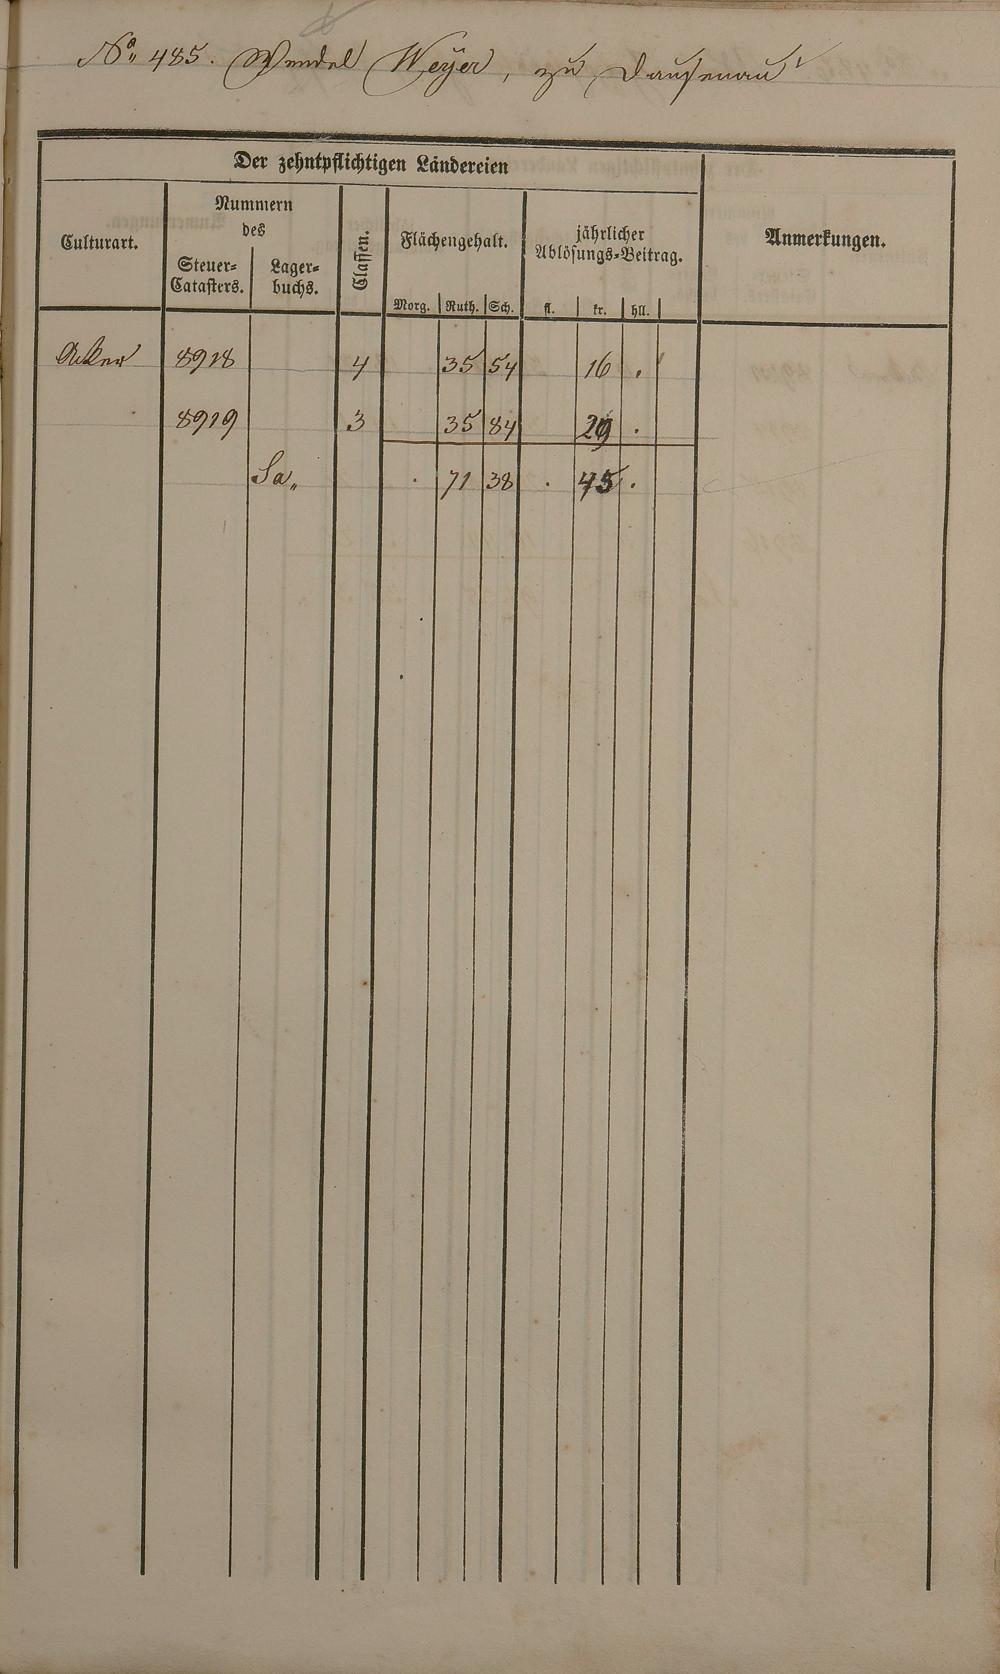 No. 485. Wendel Weyer, zu Dausenau
Der zehntpflichtigen Ländereien
Culturart.
Nummern
des
Steuer-
Catasters.
Lager-
buchs.
Classen.
Flächengehalt.
Morg. Ruth. Sch.
jährlicher
Ablösungs-Beitrag.
fl. kr. hll.
Anmerkungen.
Acker 8918 4 35 54 16 .
8919 3 35 84 29 .
Sa. . 71 38 . 45 .